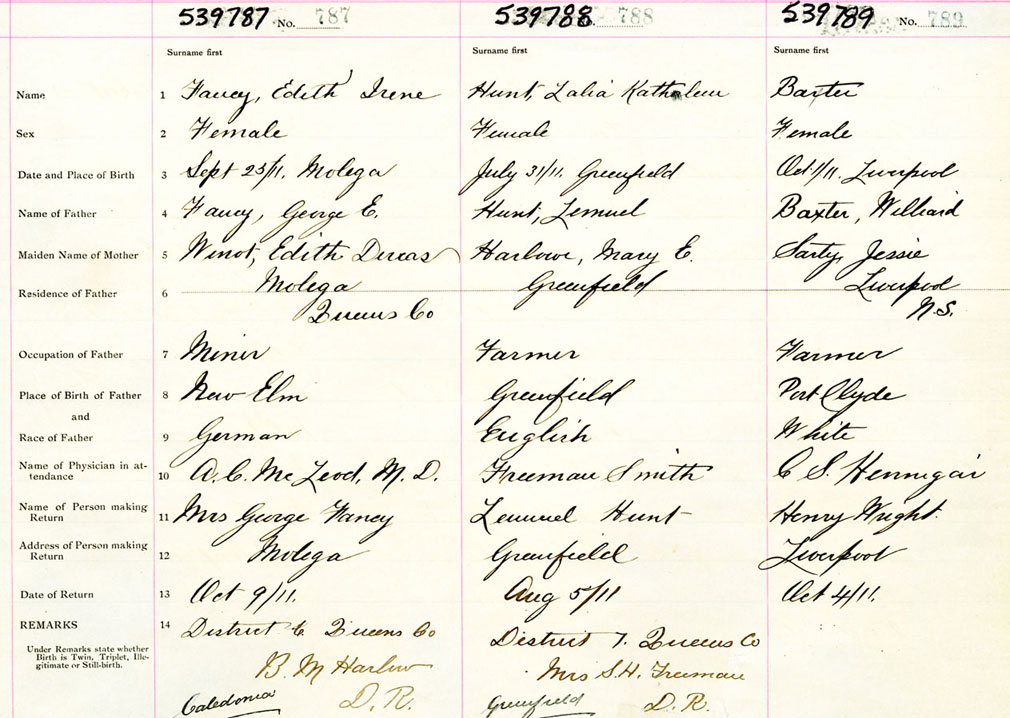 539787 No. 787 539788 788 539789 No. 789
Surname first Surname first Surname first
Name 1 Fancy, Edith Irene Hunt, Lalia Kathaleen Baxter
Sex 2 Female Female Female
Date and Place of Birth 3 Sept 25/11. Molega July 31/11. Greenfield Oct 1/11. Liverpool
Name of Father 4 Fancy, George E. Hunt, Lemuel Baxter, Williard
Maiden Name of Mother 5 Winot, Edith Dorcas Harlowe, Mary E. Sarty, Jessie
Molega Greenfield Liverpool
Residence of Father 6
Queens Co N.S.
Occupation of Father 7 Miner Farmer Farmer
Place of Birth of Father 8 New Elm Greenfield Port Clyde
and
Race of Father 9 German English White
Name of Physician in at-
tendance 10 A. C. McLeod, M. D. Freeman Smith C S. Hennigar
Name of Person making
Return 11 Mrs George Fancy Lemuel Hunt Henry Wright.
Address of Person making
Return 12 Molega Greenfield Liverpool
Date of Return 13 Oct 9/11. Aug 5/11 Oct 4/11.
REMARKS 14 District 6 Queens Co District 7. Queens Co
Under Remarks state whether
Birth is Twin, Triplet, Ille-
gitimate or Still-birth.
B. M Harlow Mrs S.H. Freeman
Caledonia D. R. Greenfield D. R.